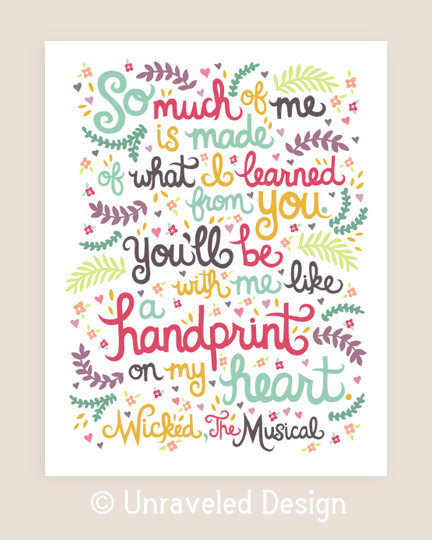 So much of me
is made
of what I learned
from you.
You'll be
with me like
a
handprint
on my heart.
Wicked, The Musical
© Unraveled Design